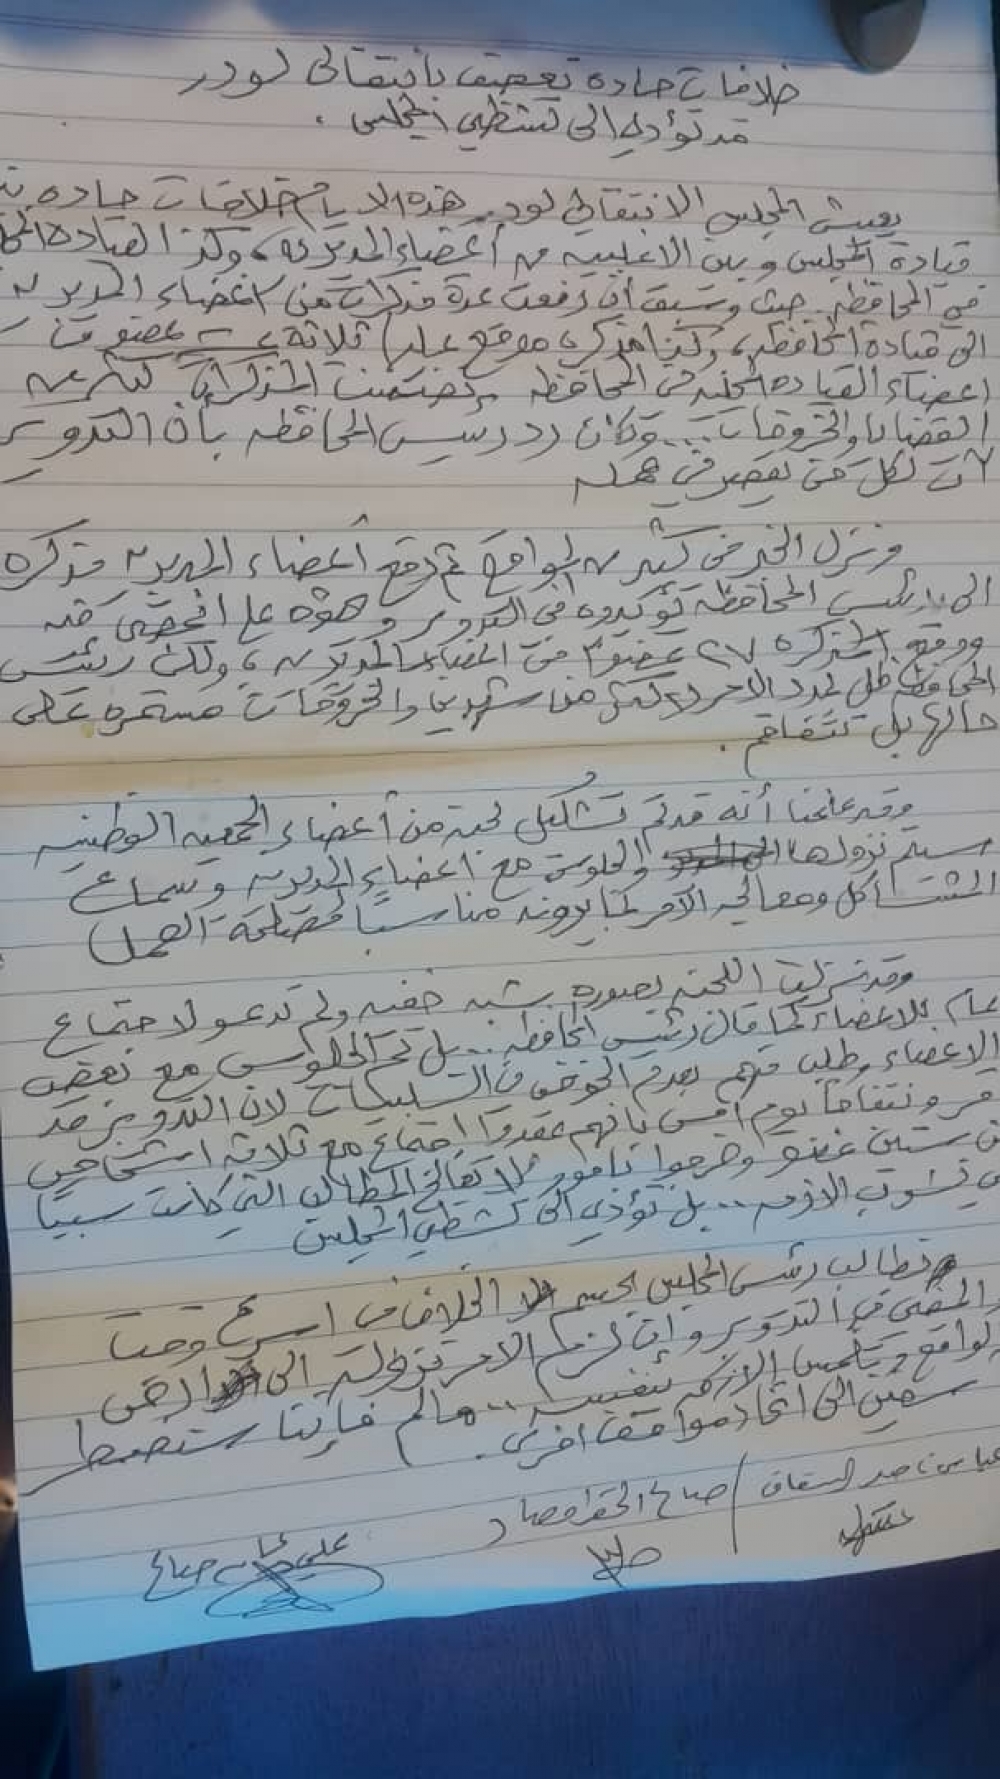 خلافات حاده تعصف بانتقالي لودر
قد تؤدي الى تشظي المجلس .
يعيش المجلس الانتقالي لودر هذه الايام خلافات حاده
قيادة المجلس وبين الاغلبيه من أعضاء المديريه، وكذا القياده
في المحافظه. حيث وسبق أن رفعت عدة مذكرات من اعضاء المديريه
الى قيادة المحافظه، وكذا مذكره موقع عليها ثلاثة عضو من
اعضاء القياده المحليه في المحافظه تضمنت المذكرات كثير من
القضايا والخروقات... وكان رد رئيس المحافظه بأن التدوير
لكل من يقصر في عمله
ونزل الخبر في كثير من المواقع ثم رفع أعضاء المديريه مذكره
الى رئيس المحافظه يؤيدوه في التدوير على المضي فيه
ووقع المذكره ٢٧ عضواً من اعضاء المديريه، ولكن رئيس
المحافظه ظل يمدد الامر لاكثر من شهرين والخروقات مستمره على
حالها بل تتفاقم .
وقد علمنا أنه قد تم تشكيل لجنة من أعضاء الجمعيه الوطنيه
سيتم نزولها والجلوس مع اعضاء المديريه وسماع
المشاكل ومعالجة الامر بما يرونه مناسباً لمصلحة العمل
وقد نزلت اللجنه بصوره شبه خفيه ولم تدعو لاجتماع
عام للاعضاء كما قال رئيس المحافظه .. بل تم الجلوس مع بعض
الاعضاء وطلب منهم عدم الخوض في السلبيات لان التدوير قد
ونتفاجأ يوم أمس بانهم عقدوا اجتماع مع ثلاثه اشخاص
من ستين عضو وخرجوا بامور لا تعالج المطالب التي كانت سبباً
في نشوب الازمه .. بل تؤدي الى تشظي المجلس
نطالب رئيس المجلس بحسم الخلاف في اسرع وقت
والمضي في التدوير وان لزم الامر نزوله الى ارض
الواقع ويتلمس الازمه بنفسه .. مالم فإننا سنضطر
الى اتخاذ مواقف اخرى .
عباس ناصر السقاف / صالح الخضر
علي صالح